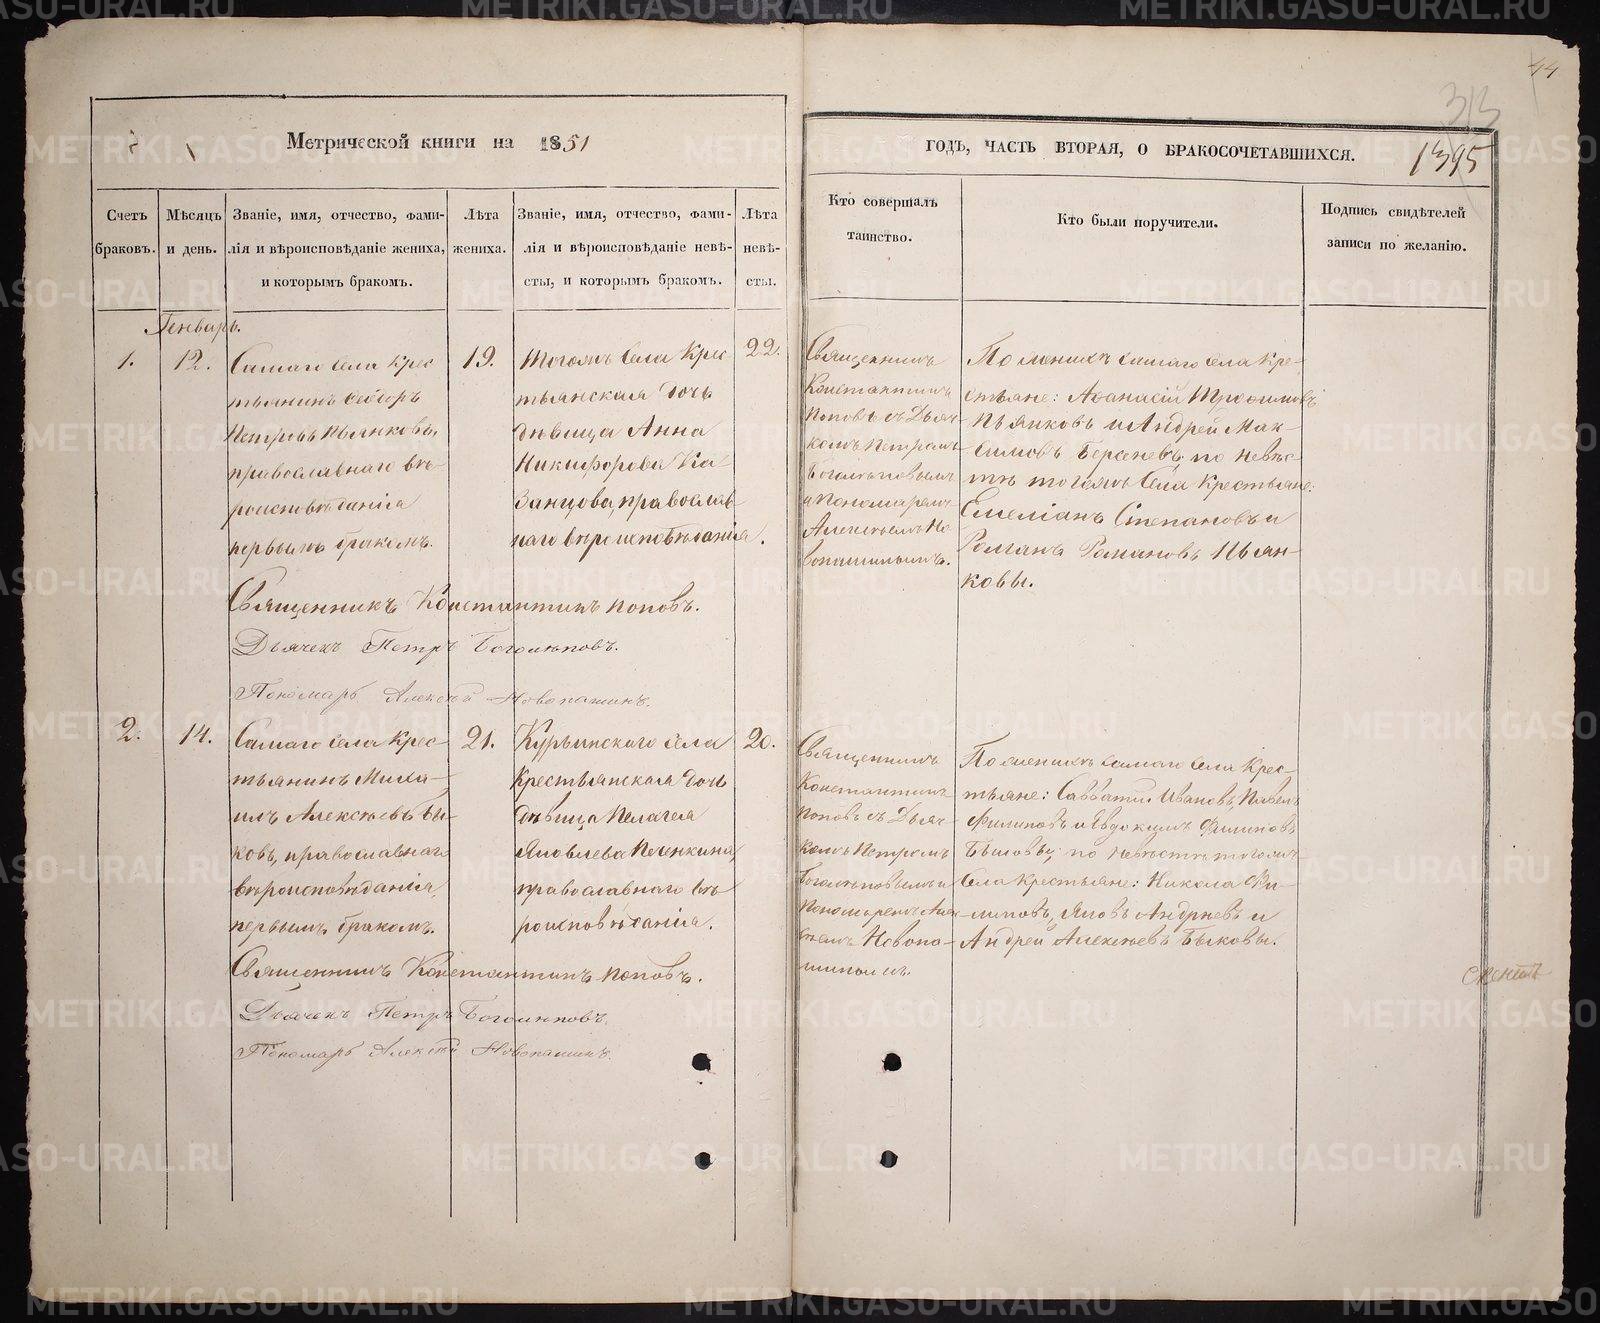 44
313
Метрической книги на 1851
годъ, часть вторая, о бракосочетавшихся.
1395
Счетъ
браковъ.
Мѣсяцъ
и день.
Званіе, имя, отчество, фами-
лія и вѣроисповѣданіе жениха,
и которымъ бракомъ.
Лѣта
жениха.
Званіе, имя, отчество, фами-
лія и вѣроисповѣданіе невѣ-
сты, и которымъ бракомъ.
Лѣта
невѣ-
сты.
Кто совершалъ
таинство.
Кто были поручители.
Подпись свидѣтелей
записи по желанію.
Генварь.
1.
12.
Самаго села Крес
тьянинъ Ѳедоръ
Петровъ Пьянковъ,
православнаго вѣ-
роисповѣданія
первымъ бракомъ.
19.
Тогожъ Села Крес
тьянская дочь
дѣвица Анна
Никифорова Ка
занцова, православ-
наго вѣроисповѣданія.
22.
Священникъ
Константинъ
Поповъ съ Дьяч-
комъ Петромъ
Боголѣповымъ
и Пономаремъ
Алексѣемъ Но
вопашинымъ.
По женихѣ самаго села Кре-
стьяне: Аѳанасій Трофимовъ
Пьянковъ и Андрей Мак-
симовъ Берсеневъ, по невѣс-
тѣ тогожъ Села Крестьяне:
Емеліанъ Степановъ и
Романъ Романовъ Пьян-
ковы.
Священникъ Константинъ Поповъ.
Дьячекъ Петръ Боголѣповъ.
Пономарь Алексѣй Новопашинъ.
2.
14.
Самаго села Крес-
тьянинъ Миха-
илъ Алексѣевъ Бы-
ковъ, православнаго
вѣроисповѣданія,
первымъ бракомъ.
21.
Курьинскаго села
Крестьянская дочь
дѣвица Пелагея
Яковлева Печенкина,
православнаго вѣ-
роисповѣданія.
20.
Священникъ
Константинъ
Поповъ съ Дьяч-
комъ Петромъ
Боголѣповымъ и
Пономаремъ Алек-
сѣемъ Новопа-
шинымъ.
По женихѣ самаго села Крес-
тьяне: Савватій Ивановъ, Павелъ
Филиповъ и Евдокимъ Филиповъ
Быковы; по невѣстѣ тогожъ
Села Крестьяне: Никола Фи-
липовъ, Яковъ Андреевъ и
Андрей Алексѣевъ Быковы.
Священникъ Константинъ Поповъ.
Дьячекъ Петръ Боголѣповъ.
Пономарь Алексѣй Новопашинъ.